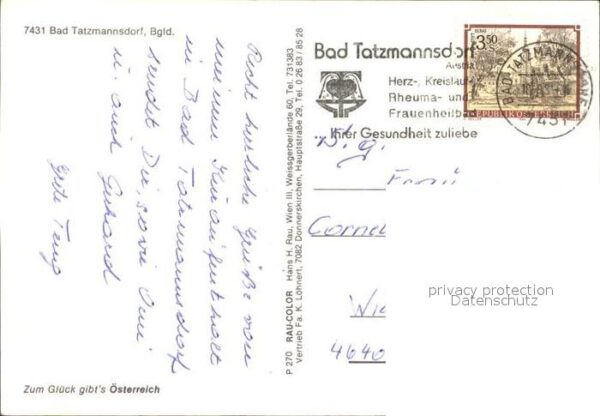 7431 Bad Tatzmannsdorf, Bgld.
Recht herzliche Grüße von
meinem Kuraufenthalt
in Bad Tatzmannsdorf
sendet Dir, sowie Omi
u. auch Gerhard
Zum Glück gibt's Österreich
P 270 RAU-COLOR Hans H. Rau, Wien III, Weissgerberlände 60, Tel. 731383
Vertrieb Fa. K. Löhnert, 7082 Donnerskirchen, Hauptstraße 29, Tel. 0 26 83 / 85 28
Bad Tatzmannsdorf
Herz-, Kreislauf-
Rheuma- und
Frauenheilbad
Ihrer Gesundheit zuliebe
3.50
REPUBLIK ÖSTERREICH
BAD TATZMANNS
7431
Cornel
Wie
4640
privacy protection
Datenschutz